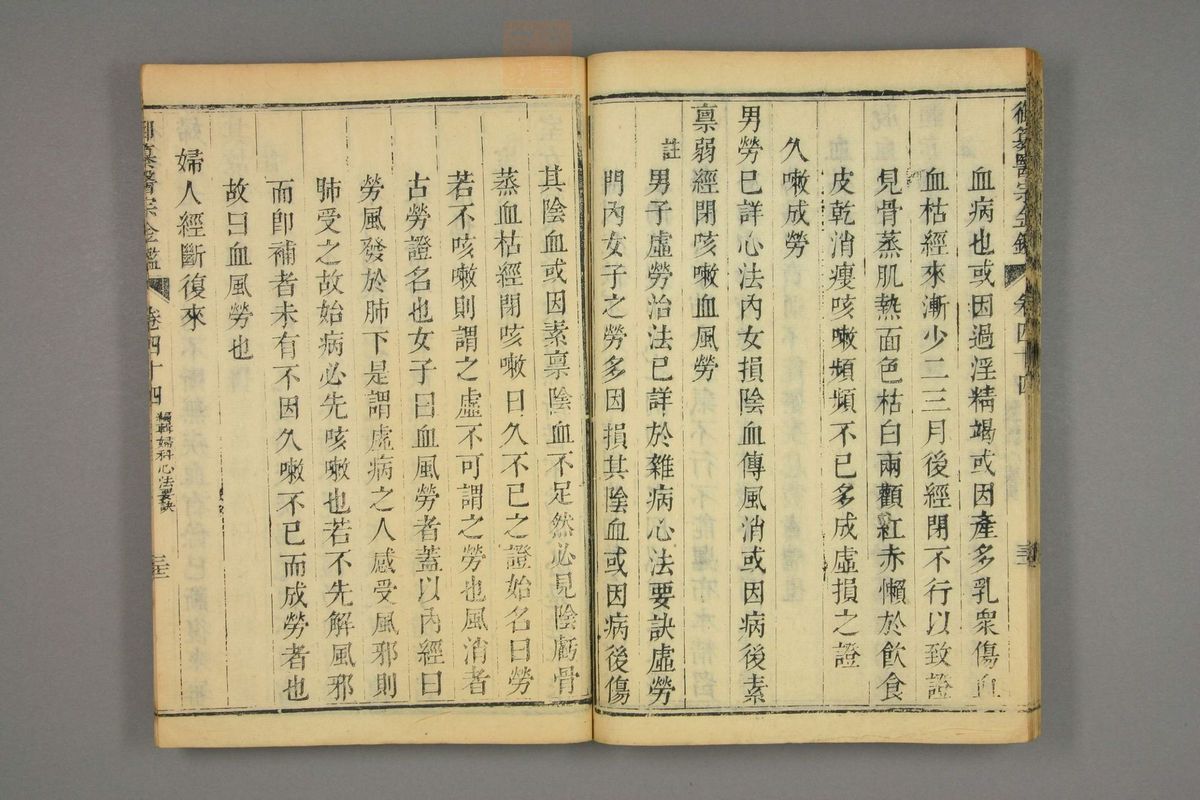 御纂醫宗金鑑 卷四十四
血病也或因過淫精竭或因產多乳衆傷血
血枯經來漸少二三月後經閉不行以致證
見骨蒸肌熱面色枯白兩顴紅赤懶於飲食
皮乾消瘦咳嗽頻頻不已多成虛損之證
久嗽成勞
男勞已詳心法內女損陰血傳風消或因病後素
禀弱經閉咳嗽血風勞
註男子虛勞治法已詳於雜病心法要訣虛勞
門內女子之勞多因損其陰血或因病後傷
其陰血或因素禀陰血不足然必見陰虧骨
蒸血枯經閉咳嗽日久不已之證始名曰勞
若不咳嗽則謂之虛不可謂之勞也風消者
古勞證名也女子曰血風勞者蓋以內經曰
勞風發於肺下是謂虛病之人感受風邪則
肺受之故始病必先咳嗽也若不先解風邪
而卽補者未有不因久嗽不已而成勞者也
故曰血風勞也
婦人經斷復來
御纂醫宗金鑑 卷四十四 編輯婦科心法要訣